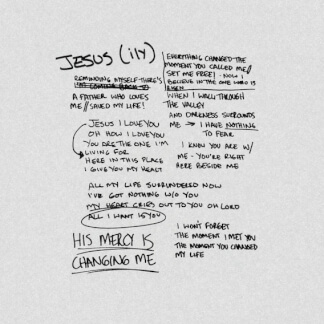 JESUS (ily)
REMINDING MYSELF THERE'S
A FATHER WHO LOVES
ME // SAVED MY LIFE!
JESUS I LOVE YOU
OH HOW I LOVE YOU
YOU ARE THE ONE I'M
LIVING FOR
HERE IN THIS PLACE
I GIVE YOU MY HEART
ALL MY LIFE SURRENDERED NOW
I'VE GOT NOTHING W/O YOU
MY HEART CRIES OUT TO YOU OH LORD
ALL I WANT IS YOU
HIS MERCY IS
CHANGING ME
EVERYTHING CHANGED THE
MOMENT YOU CALLED ME //
SET ME FREE! - NOW I
BELIEVE IN THE ONE WHO IS
RISEN
WHEN I WALK THROUGH
THE VALLEY
AND DARKNESS SURROUNDS
ME → I HAVE NOTHING
TO FEAR
I KNOW YOU ARE W/
ME - YOU'RE RIGHT
HERE BESIDE ME
I WON'T FORGET
THE MOMENT I MET YOU
THE MOMENT YOU CHANGED
MY LIFE